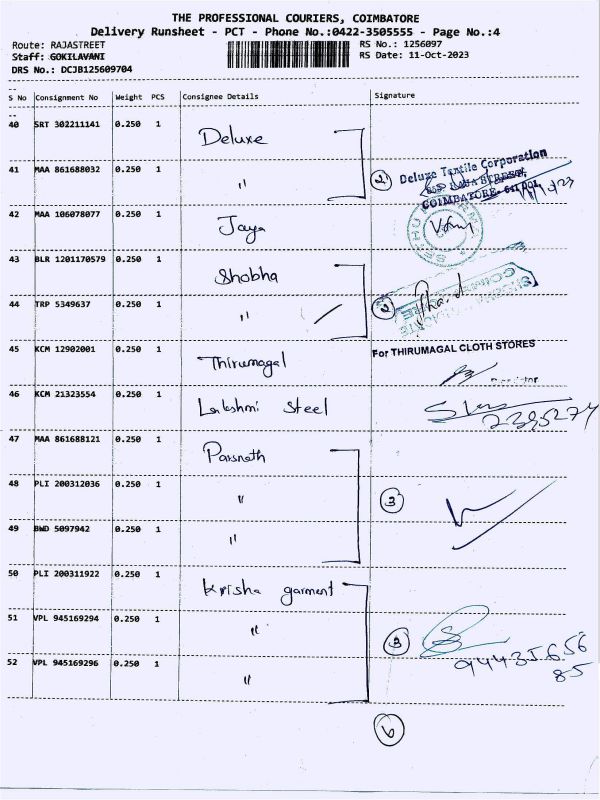 THE PROFESSIONAL COURIERS, COIMBATORE
Delivery Runsheet - PCT - Phone No.:0422-3505555 - Page No.:4
Route: RAJASTREET RS No.: 1256097
Staff: GOKILAVANI RS Date: 11-Oct-2023
DRS No.: DCJB125609704
S No Consignment No Weight PCS Consignee Details Signature
40 SRT 302211141 0.250 1 Deluxe
41 MAA 861688032 0.250 1 " 2 Deluxe Textile Corporation
COIMBATORE- 641 001
42 MAA 106078077 0.250 1 Jaya
43 BLR 1201170579 0.250 1 Shobha
44 TRP 5349637 0.250 1 " 2
45 KCM 12902001 0.250 1 Thirumagal For THIRUMAGAL CLOTH STORES
46 KCM 21323554 0.250 1 Lakshmi Steel 2395274
47 MAA 861688121 0.250 1 Parsnath
48 PLI 200312036 0.250 1 " 3
49 BWD 5097942 0.250 1 "
50 PLI 200311922 0.250 1 Krisha garment
51 VPL 945169294 0.250 1 " 3
52 VPL 945169296 0.250 1 " 94435656
85
6